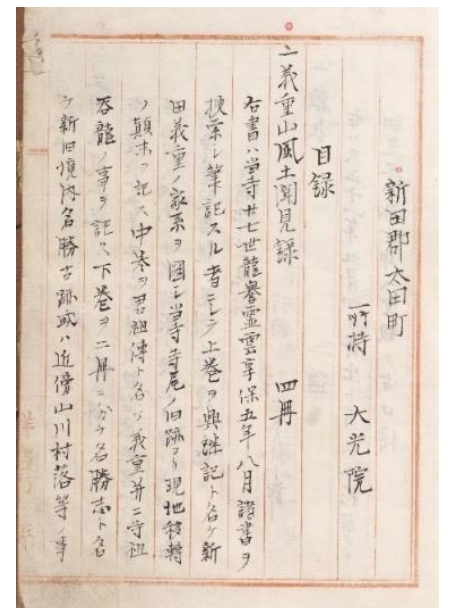 新田郡太田町
所蔵 大光院
目録
一義重山風土聞見録 四冊
右書ハ当寺廿七世龍誉霊雲享保五年八月諸書ヲ
捜索シ筆記スル者ニシテ上巻ヲ興隆記ト名ケ新
田義重ノ家系ヲ図シ当寺寺尾ノ旧跡ヨリ現地移転
ノ顛末ヲ記ス中巻ヲ君祖傳ト名ツ義重并ニ寺祖
呑龍ノ事ヲ記ス下巻ヲ二冊ニ分チ名勝志ト名
ケ新旧境内名勝古跡或ハ近傍山川村落等ノ事